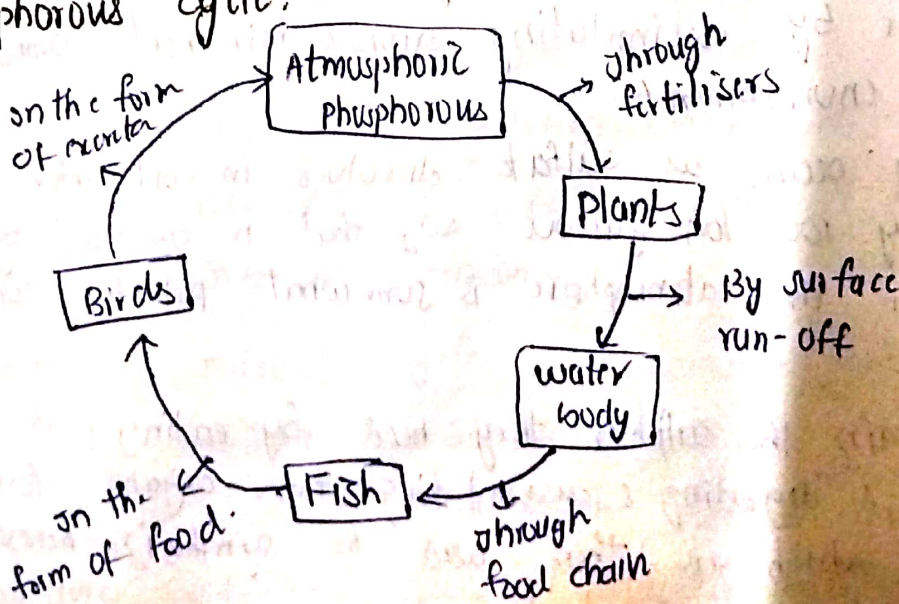 phorous cycle.
Atmusphoric
phusphorous
Through
fertilisers
Plants
By surface
run-off
water
body
Through
food chain
Fish
In the
form of food.
Birds
In the form
of excreta